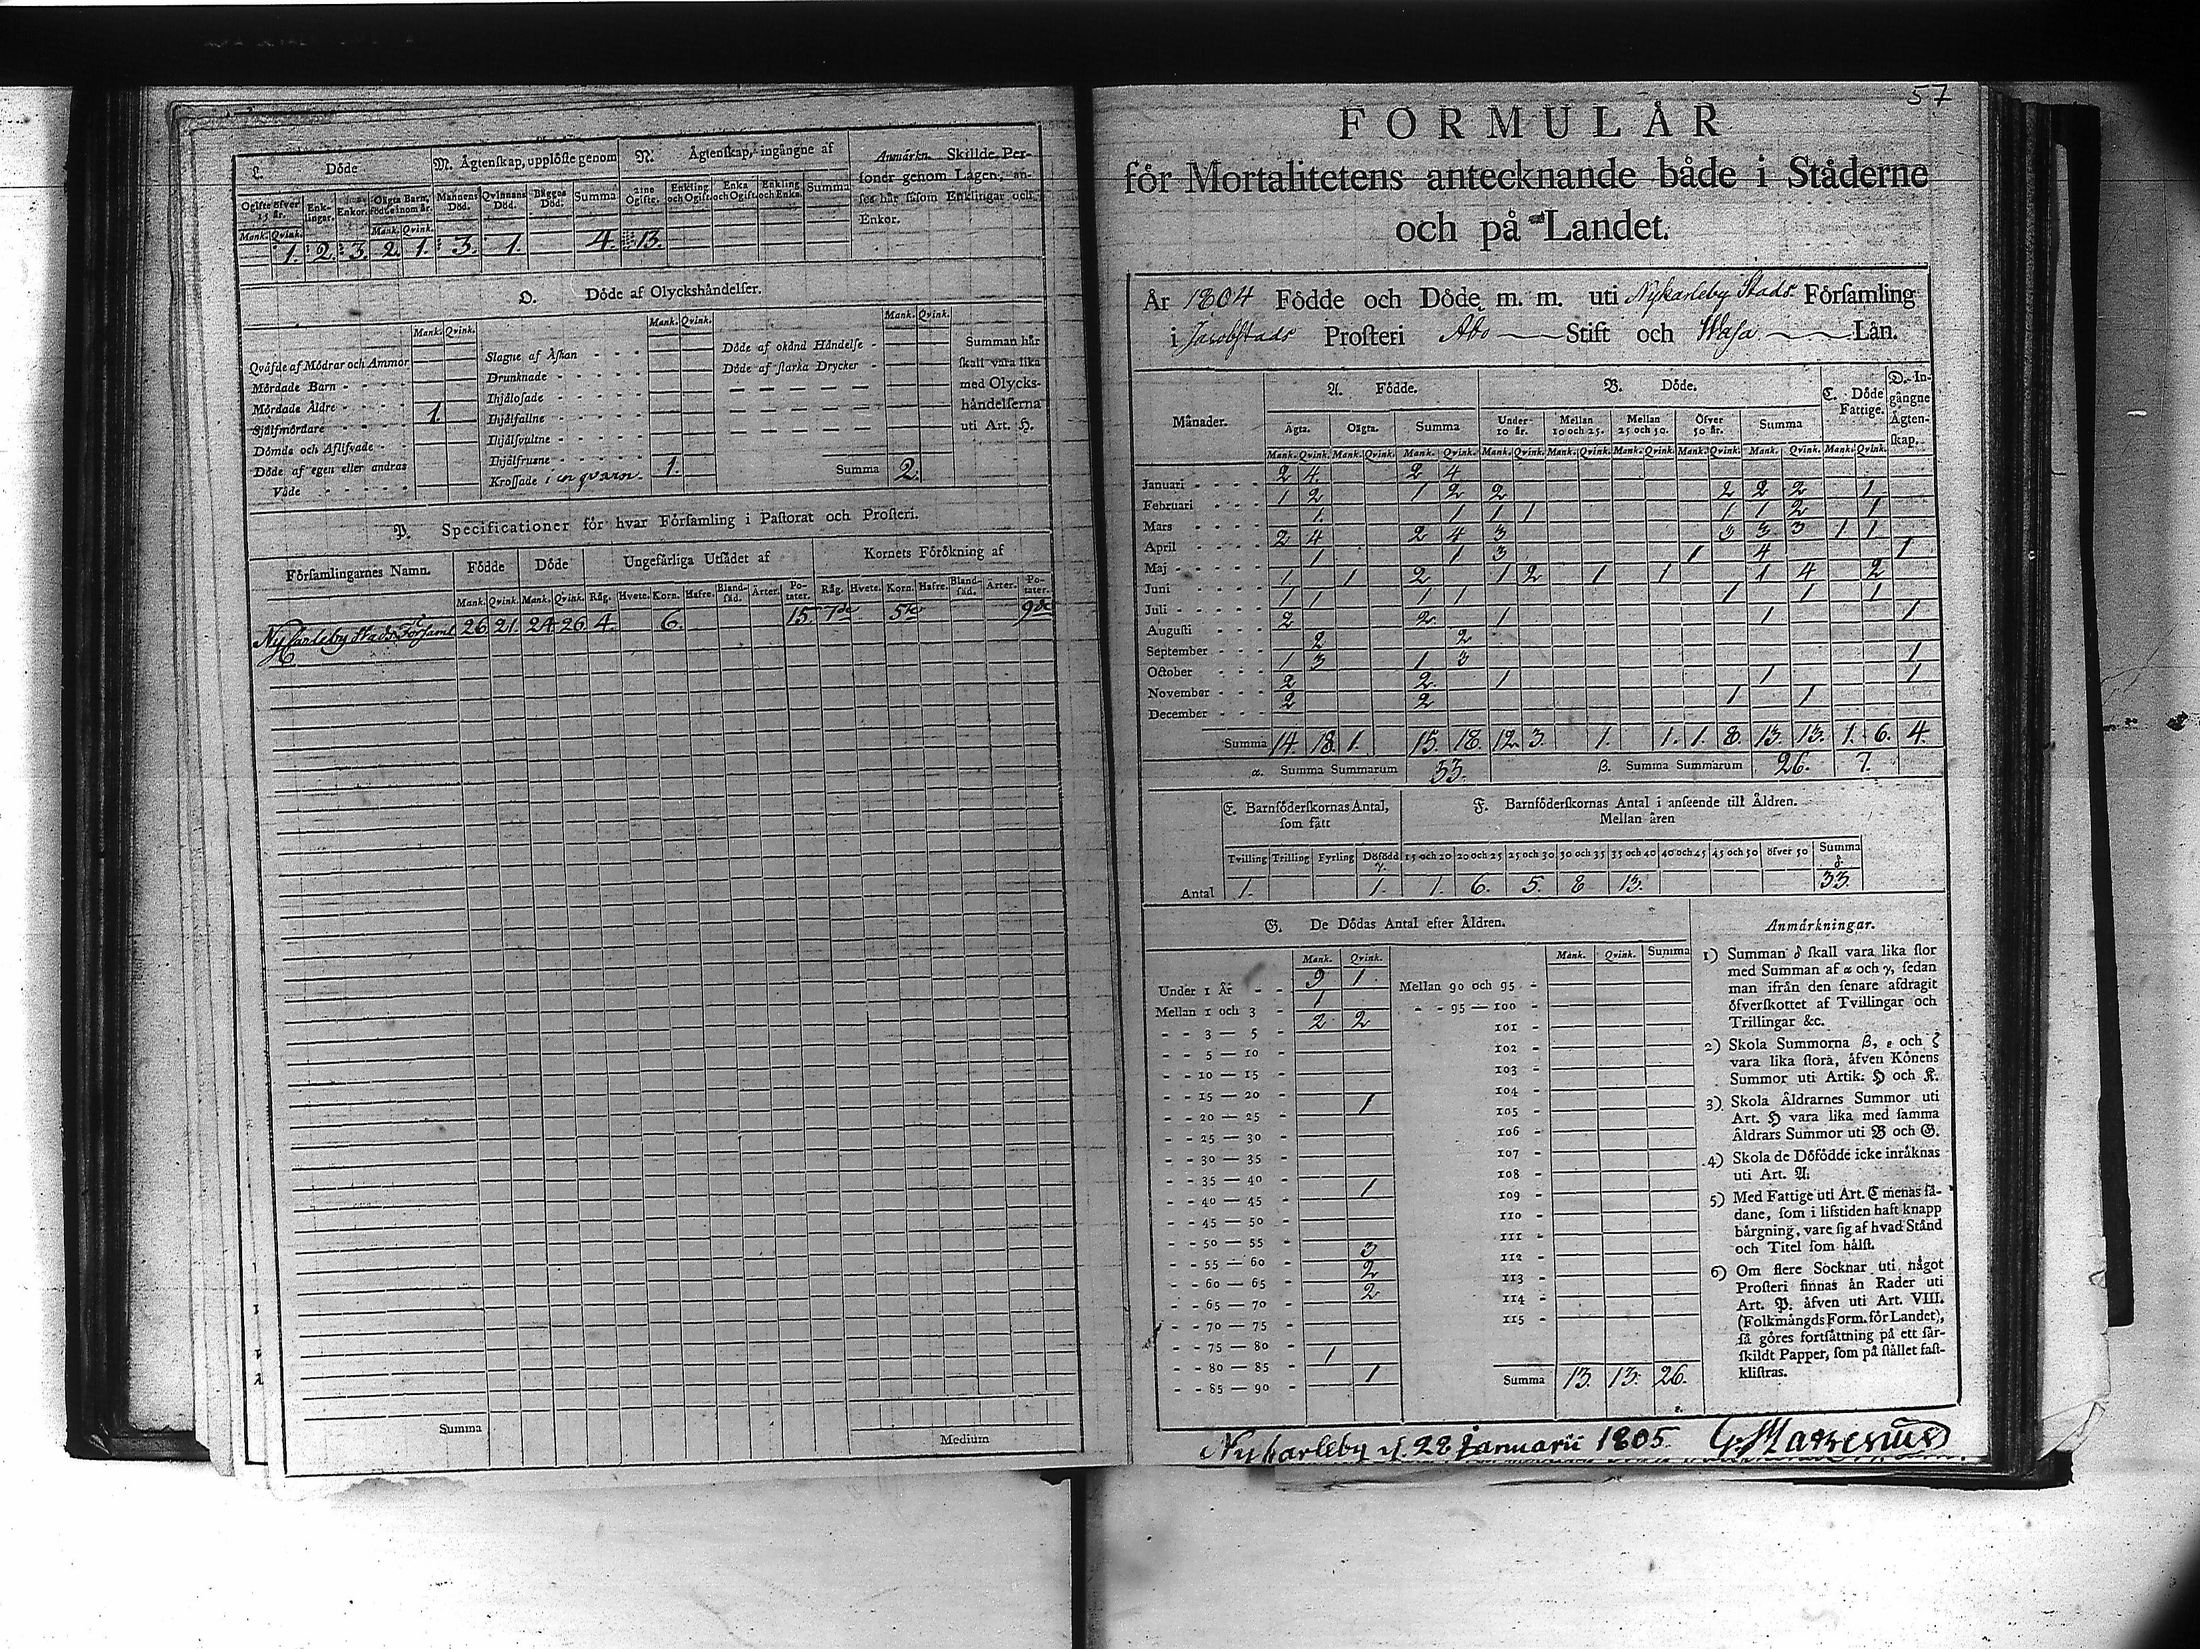 L. Döde
M. Ägtenskap, upplöste genom
N. Ägtenskap, ingångne af
Anmärkn. Skillde Personer genom Lagen, anses här såsom Enklingar och Enkor.
Ogifte öfver 15 år. Enklingar. Enkor. Oägta Barn, födde inom år. Mannens Död. Qvinnans Död. Bägges Död. Summa 2:ne Ogifte. Enkling och Ogift. Enka och Ogift. Enkling och Enka. Summa
Mank. Qvink. Mank. Qvink.
1. 2. 3. 2. 1. 3. 1. 4. 13.
O. Döde af Olyckshändelser.
Mank. Qvink. Mank. Qvink. Mank. Qvink.
Qväfde af Mödrar och Ammor
Mördade Barn - - - -
Mördade Äldre - - - -
Sjölfmördare - - - - 1.
Dömde och Aflifvade - -
Döde af egen eller andras
Våde - - - - -
Slagne af Åskan - - -
Drunknade - - - - -
Ihjälosade - - - - -
Ihjälfallne - - - -
Ihjälsvultne - - - -
Ihjälfrusne - - - - -
Krossade i en qvarn. 1.
Döde af okänd Händelse -
Döde af starka Drycker -
Summa 2.
Summan här skall vara lika med Olyckshändelserna uti Art. H.
P. Specificationer för hvar Församling i Pastorat och Prosteri.
Församlingarnes Namn. Födde Döde Ungefärliga Utsädet af Kornets Förökning af
Mank. Qvink. Mank. Qvink. Råg. Hvete. Korn. Hafre. Blandsäd. Ärter. Potater. Råg. Hvete. Korn. Hafre. Blandsäd. Ärter. Potater.
Ny Carleby Stads Församl 26 21. 24 26 4. 6. 15. 7de 5te 9de
Summa
Medium
57
FORMULÄR
för Mortalitetens antecknande både i Städerne
och på Landet.
År 1804 Födde och Döde m. m. uti Nykarleby Stads Församling
i Jacobstads Prosteri Åbo Stift och Wasa Län.
Månader. A. Födde. B. Döde. C. Döde Fattige. D. Ingångne Ägtenskap.
Ägta. Oägta. Summa Under 10 år. Mellan 10 och 25. Mellan 25 och 50. Öfver 50 år. Summa
Mank. Qvink. Mank. Qvink. Mank. Qvink. Mank. Qvink. Mank. Qvink. Mank. Qvink. Mank. Qvink. Mank. Qvink. Mank. Qvink.
Januari - - - - 2 4. 2 4
Februari - - - 1 2 1 2 2 2 2 2 1
Mars - - - - 1. 1 1 1 1 1 2 1
April - - - - 2 4 2 4 3 3 3 3 1 1
Maj - - - - 1 1 3 1 4 1
Juni - - - - 1 1 2 1 2 1 1 1 4 2
Juli - - - - 1 1 1 1 1 1 1
Augusti - - - 2 2. 1 1 1
September - - - 2 2
October - - - 1 3 1 3 1
November - - - 2 2 1 1 1
December - - - 2 2 1 1
Summa 14. 18. 1. 15. 18. 12. 3. 1. 1. 1. 8. 13. 13. 1. 6. 4.
α. Summa Summarum 33. β. Summa Summarum 26. 7.
E. Barnföderskornas Antal, som fått
F. Barnföderskornas Antal i anseende till Åldren.
Mellan åren
Tvilling Trilling Fyrling Döfödd γ. 15 och 20 20 och 25 25 och 30 30 och 35 35 och 40 40 och 45 45 och 50 öfver 50 Summa δ.
Antal 1. 1. 1. 6. 5. 8 13. 33.
G. De Dödas Antal efter Åldren.
Mank. Qvink. Mank. Qvink. Summa
Under 1 År - - 9 1.
Mellan 1 och 3 - 1
- - 3 — 5 - 2 2
- - 5 — 10 -
- - 10 — 15 -
- - 15 — 20 -
- - 20 — 25 - 1
- - 25 — 30 -
- - 30 — 35 -
- - 35 — 40 -
- - 40 — 45 - 1
- - 45 — 50 -
- - 50 — 55 -
- - 55 — 60 - 3
- - 60 — 65 - 2
- - 65 — 70 - 2
- - 70 — 75 -
- - 75 — 80 -
- - 80 — 85 - 1
- - 85 — 90 - 1
Mellan 90 och 95 -
- - 95 — 100 -
101 -
102 -
103 -
104 -
105 -
106 -
107 -
108 -
109 -
110 -
111 -
112 -
113 -
114 -
115 -
Summa 13. 13. 26.
Anmärkningar.
1) Summan δ skall vara lika stor
med Summan af α och γ, sedan
man ifrån den senare afdragit
öfverskottet af Tvillingar och
Trillingar &c.
2) Skola Summorna β, ε och ζ
vara lika stora, äfven Könens
Summor uti Artik. H och K.
3) Skola Åldrarnes Summor uti
Art. H vara lika med samma
Åldrars Summor uti B och G.
4) Skola de Döfödde icke inräknas
uti Art. A.
5) Med Fattige uti Art. C menas sådane,
som i lifstiden haft knapp
bärgning, vare sig af hvad Stånd
och Titel som hälst.
6) Om flere Socknar uti något
Prosteri finnas än Rader uti
Art. P. äfven uti Art. VIII.
(Folkmängds Form. för Landet),
så göres fortsättning på ett särskildt
Papper, som på stället fastklistras.
Nykarleby d. 28 Januarii 1805.